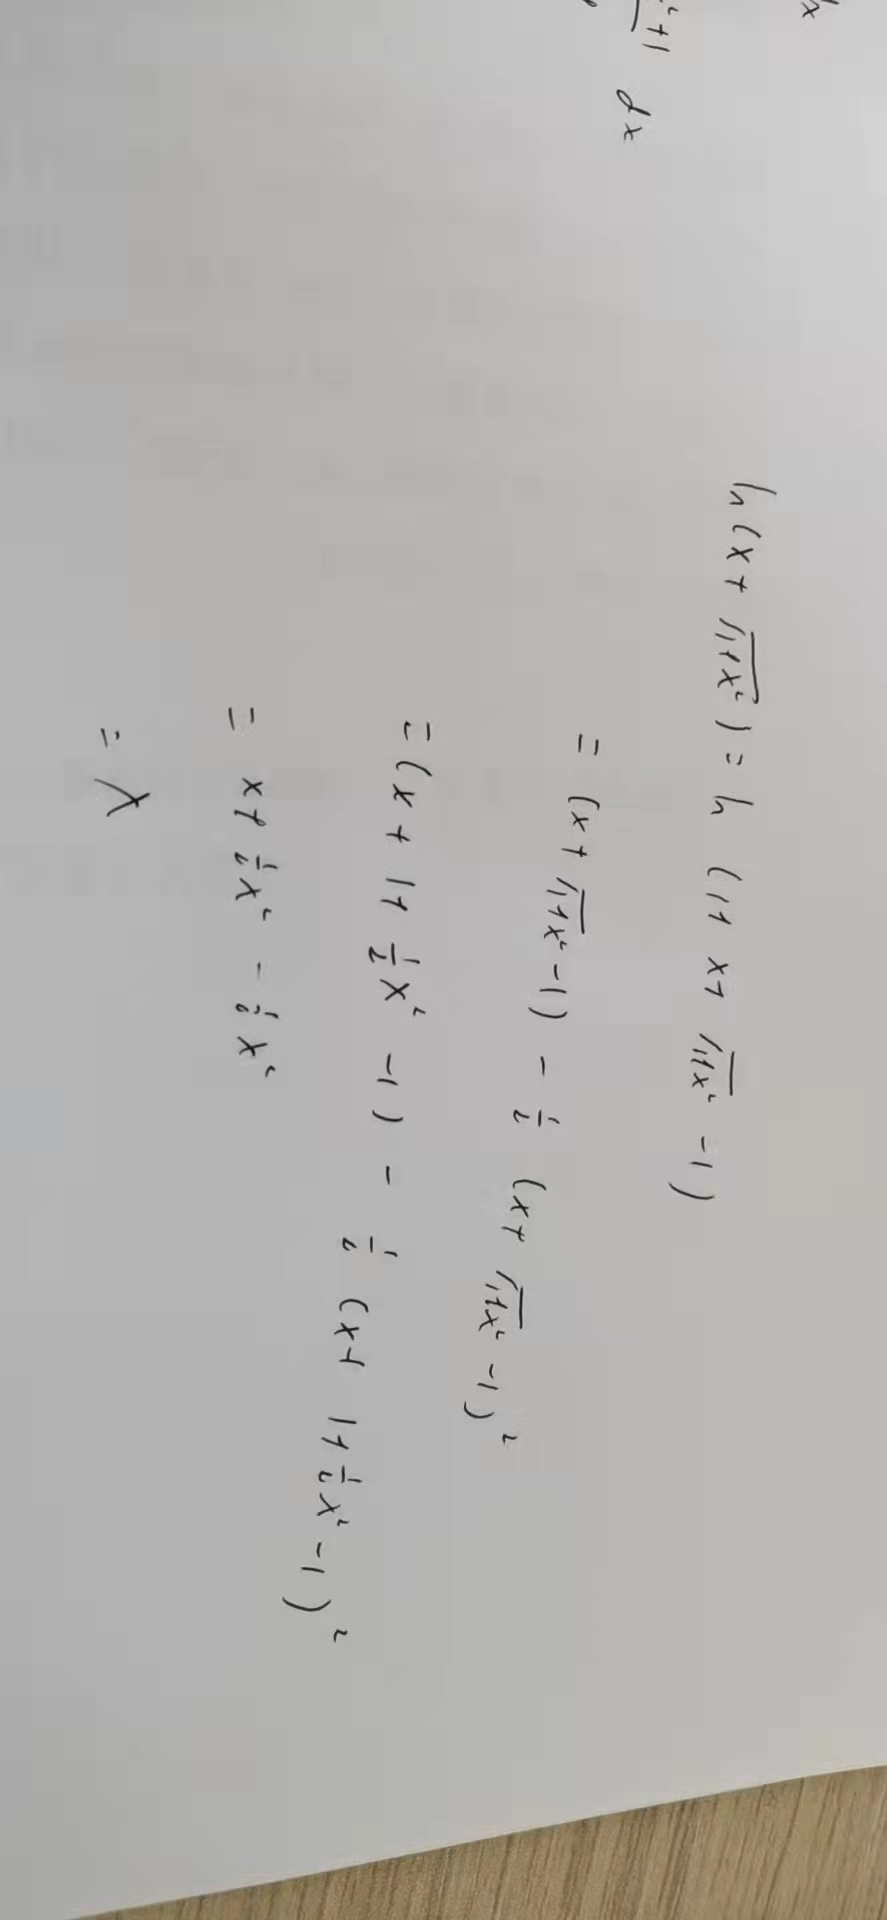 dx
²+1 dx
ln(x+√(1+x²))=ln(1+x+√(1+x²)-1)
=(x+√(1+x²)-1)-½(x+√(1+x²)-1)²
=(x+1+½x²-1)-½(x+1+½x²-1)²
=x+½x²-½x²
=x